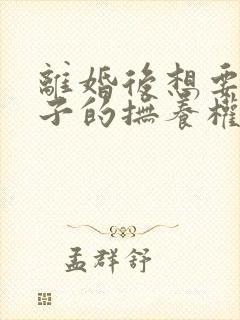 離婚後想要
子的撫養權
孟群舒